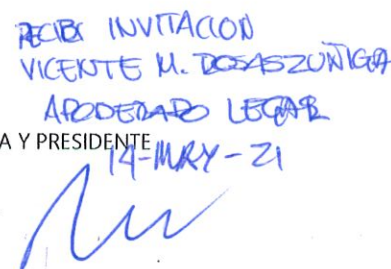 RECIBI INVITACION
VICENTE M. ROSAS ZUÑIGA
APODERADO LEGAL
A Y PRESIDENTE
14-MAY-21